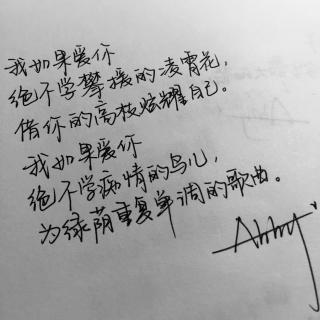 我如果爱你
绝不学攀援的凌霄花，
借你的高枝炫耀自己。
我如果爱你
绝不学痴情的鸟儿，
为绿荫重复单调的歌曲。
Abby